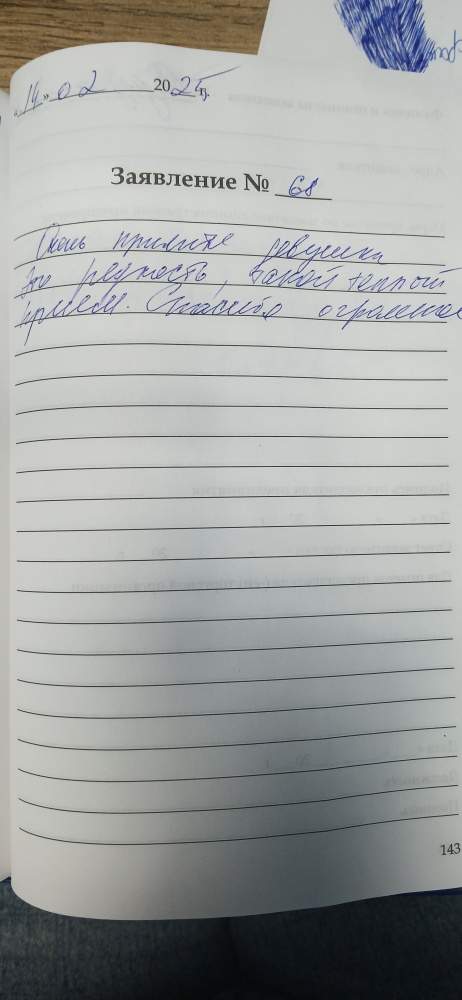 «14» 02 2025г.
Заявление № 68
Очень приятные девушки
Это редкость, такой теплый
прием. Спасибо огромное
143